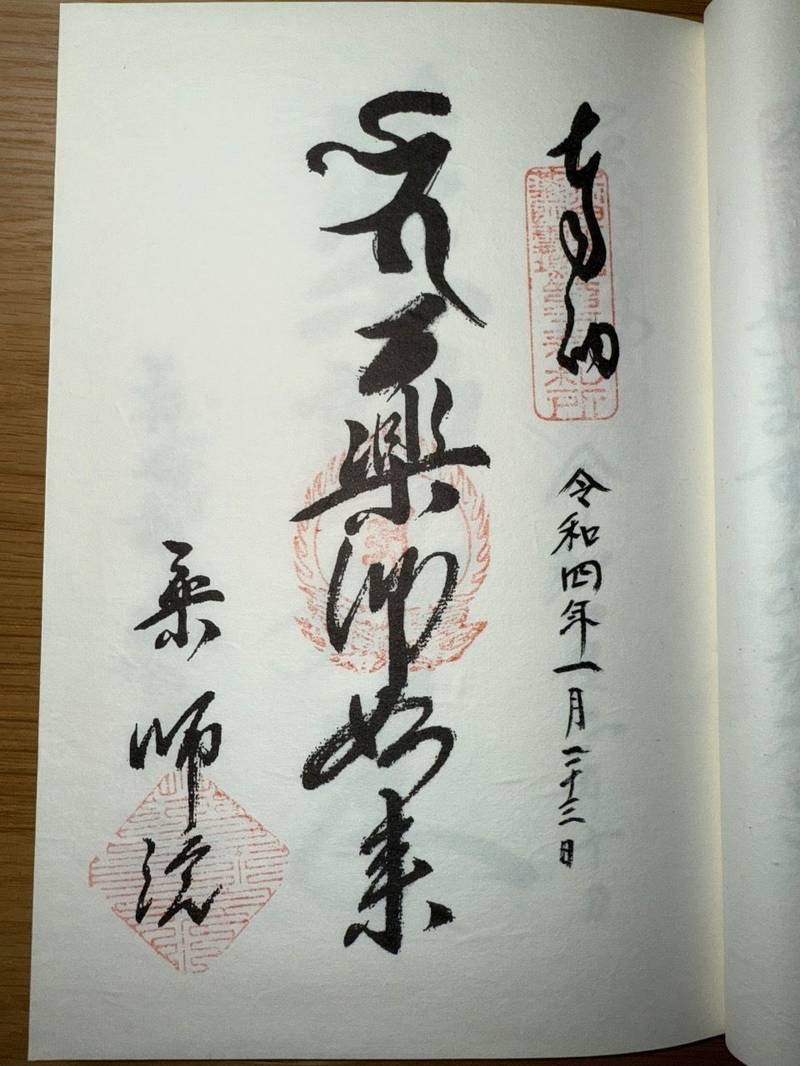 奉納
令和四年一月二十三日
薬師如来
薬師院